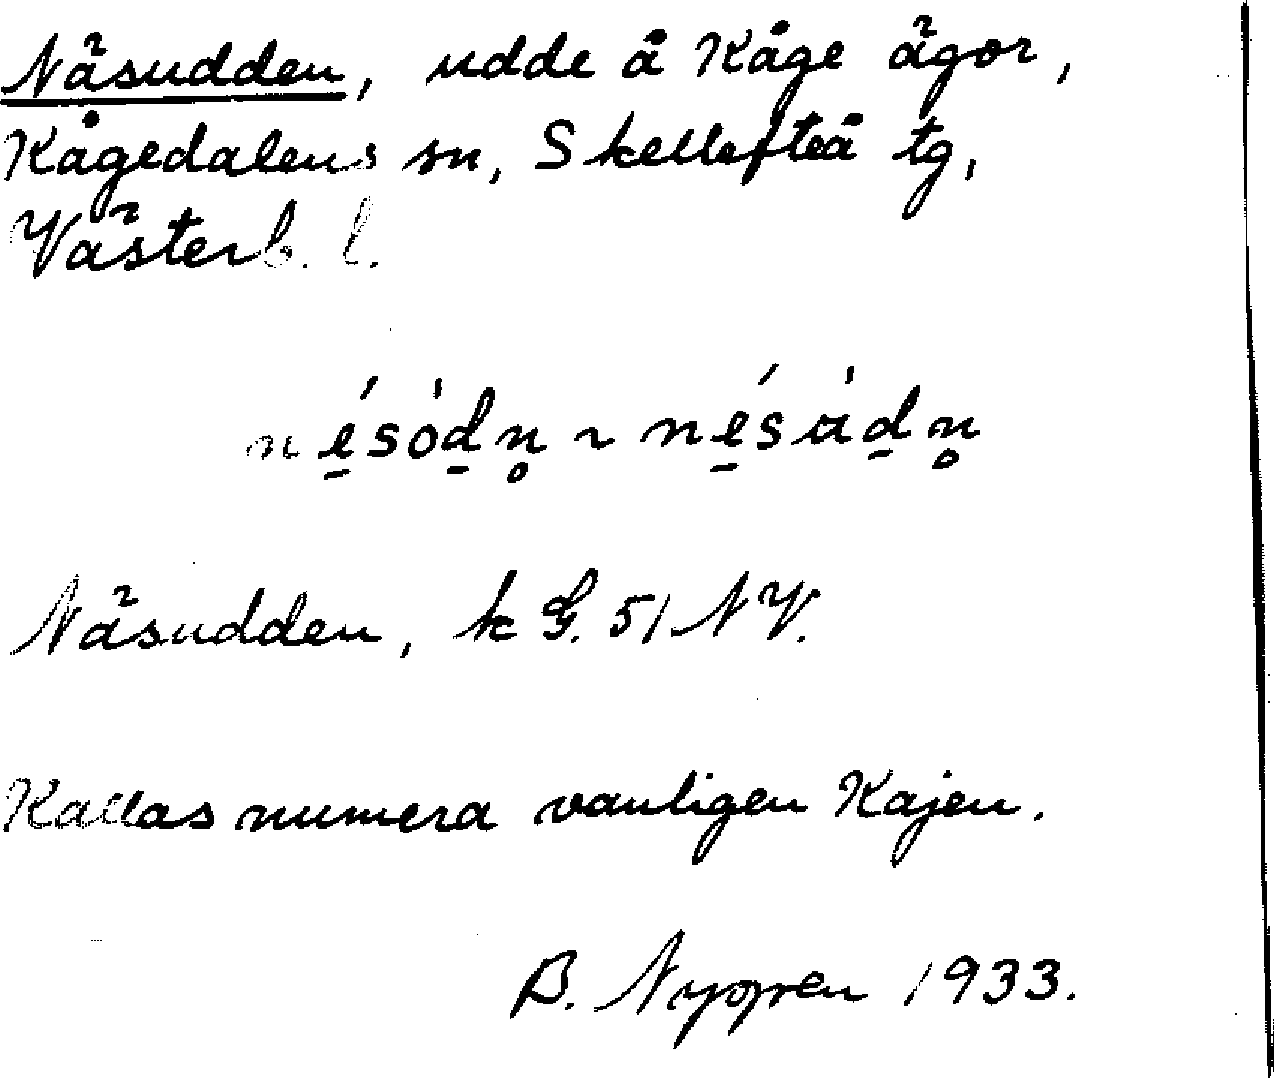 Näsudden, udde å Kåge ägor,
Kågedalens sn, Skellefteå tg,
Västerb. l.
né̱sòḏn̥ ~ né̱sàḏn̥
Näsudden, k G. 51 NV.
Kallas numera vanligen Kajen.
B. Nygren 1933.